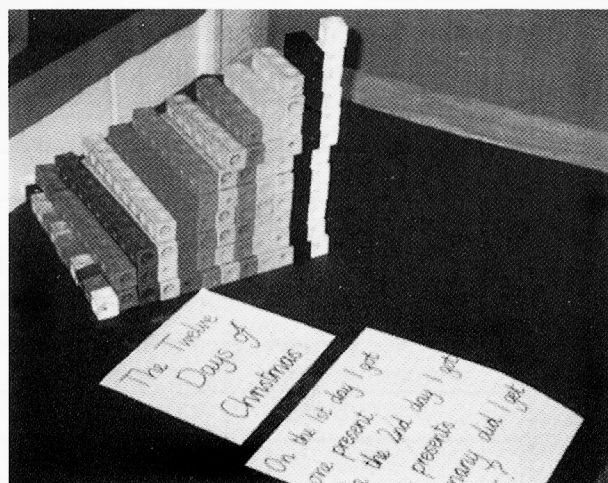 The Twelve
Days of
Christmas
On the 1st day I got
one present.
the 2nd day I got
presents
many did I get
?